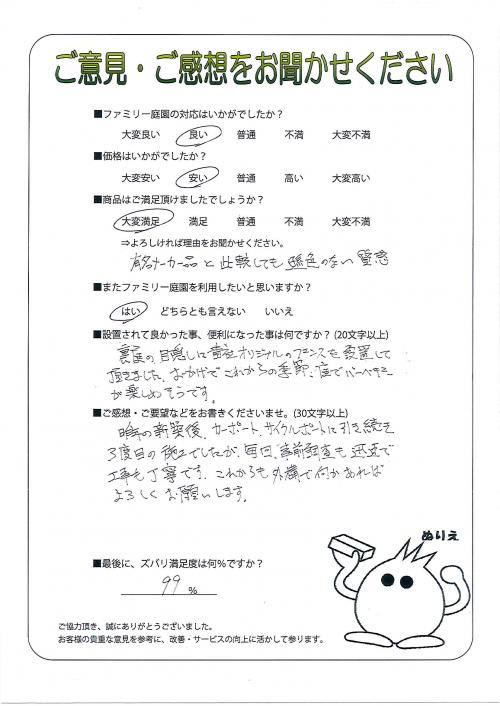 ご意見・ご感想をお聞かせください
■ファミリー庭園の対応はいかがでしたか？
大変良い 良い 普通 不満 大変不満
■価格はいかがでしたか？
大変安い 安い 普通 高い 大変高い
■商品はご満足頂けましたでしょうか？
大変満足 満足 普通 不満 大変不満
⇒よろしければ理由をお聞かせください。
有名メーカー品と比較しても遜色のない質感
■またファミリー庭園を利用したいと思いますか？
はい どちらとも言えない いいえ
■設置されて良かった事、便利になった事は何ですか？(20文字以上)
裏庭の目隠しに貴社オリジナルのフェンスを設置して
頂きました。おかげでこれからの季節、庭でバーベキュー
が楽しめそうです。
■ご感想・ご要望などをお書きくださいませ。(30文字以上)
昨年の新築後、カーポート、サイクルポートに引き続き
3度目の施工でしたが、毎回、事前調査も迅速で
工事も丁寧です。これからも外構で何かあれば
よろしくお願いします。
■最後に、ズバリ満足度は何%ですか？
99 %
ぬりえ
ご協力頂き、誠にありがとうございました。
お客様の貴重な意見を参考に、改善・サービスの向上に活かして参ります。